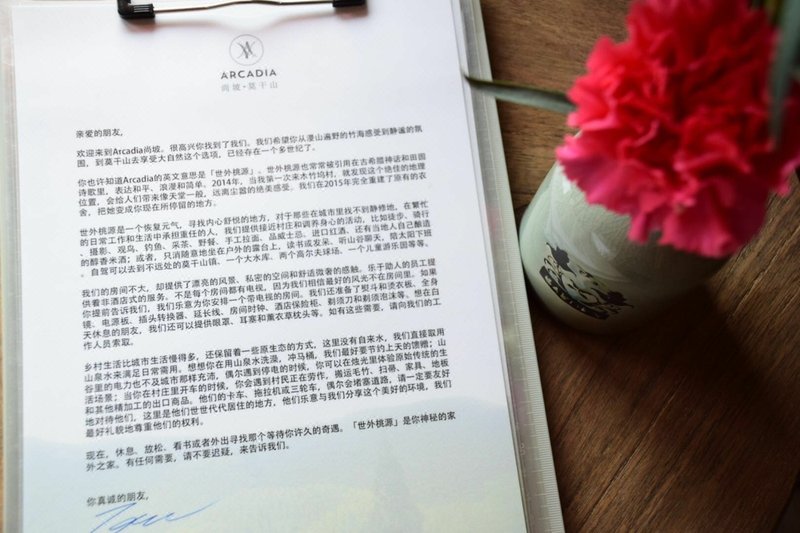 ARCADIA
尚坡·莫干山
亲爱的朋友，
欢迎来到Arcadia尚坡。很高兴你找到了我们。我们希望你从漫山遍野的竹海感受到静谧的氛
围，到莫干山去享受大自然这个选项，已经存在一个多世纪了。
你也许知道Arcadia的英文意思是「世外桃源」。世外桃源也常常被引用在古希腊神话和田园
诗歌里，表达和平、浪漫和简单。2014年，当我第一次来木竹坞村，就发现这个绝佳的地理
位置，会给人们带来像天堂一般，远离尘嚣的绝美感受。我们在2015年完全重建了原有的农
舍，把她变成你现在所停留的地方。
世外桃源是一个恢复元气，寻找内心舒悦的地方，对于那些在城市里找不到静修地，在繁忙
的日常工作和生活中承担重任的人，我们提供接近村庄和调养身心的活动，比如徒步、骑行
、摄影、观鸟、钓鱼、采茶、野餐、手工拉面、品威士忌、进口红酒、还有当地人自己酿造
的醇香米酒；或者，只消随意地坐在户外的露台上，读书或发呆、听山谷聊天，陪太阳下班
。自驾可以去到不远处的莫干山镇，一个大水库、两个高尔夫球场、一个儿童游乐园等等。
我们的房间不大，却提供了漂亮的风景、私密的空间和舒适微奢的感触。乐于助人的员工提
供着非酒店式的服务。不是每个房间都有电视。因为我们相信最好的风光不在房间里。如果
你提前告诉我们，我们乐意为你安排一个带电视的房间。我们还准备了熨斗和烫衣板、全身
镜、电源板、插头转换器、延长线、房间时钟、酒店保险柜、剃须刀和剃须泡沫等。想在白
天休息的朋友，我们还可以提供眼罩、耳塞和薰衣草枕头等。如有这些需要，请向我们的工
作人员索取。
乡村生活比城市生活慢得多，还保留着一些原生态的方式，这里没有自来水，我们直接取用
山泉水来满足日常需用。想想你在用山泉水洗澡，冲马桶，我们最好要节约上天的馈赠；山
谷里的电力也不及城市那样充沛，偶尔遇到停电的时候，你可以在烛光里体验原始传统的生
活场景；当你在村庄里开车的时候，你会遇到村民正在劳作，搬运毛竹、扫帚、家具、地板
和其他精加工的出口商品。他们的卡车、拖拉机或三轮车，偶尔会堵塞道路，请一定要友好
地对待他们，这里是他们世世代代居住的地方，他们乐意与我们分享这个美好的环境，我们
最好礼貌地尊重他们的权利。
现在，休息、放松、看书或者外出寻找那个等待你许久的奇遇。「世外桃源」是你神秘的家
外之家。有任何需要，请不要迟疑，来告诉我们。
你真诚的朋友，